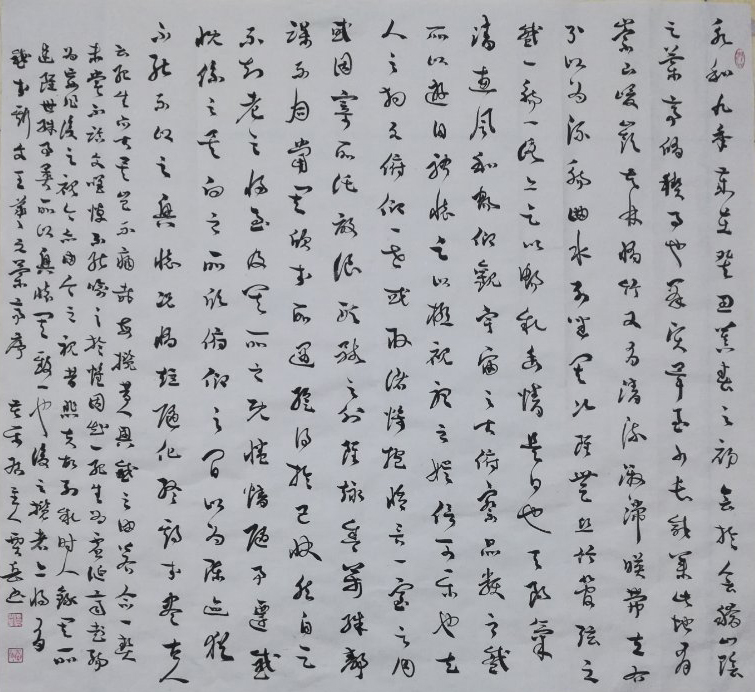 永和九年歲在癸丑暮春之初會於會稽山陰
之蘭亭脩稧事也羣賢畢至少長咸集此地有
崇山峻嶺茂林脩竹又有清流激湍暎帶左右
引以為流觴曲水列坐其次雖無絲竹管弦之
盛一觴一詠亦足以暢敘幽情是日也天朗氣
清惠風和暢仰觀宇宙之大俯察品類之盛
所以遊目騁懷足以極視聽之娛信可樂也夫
人之相與俯仰一世或取諸懷抱悟言一室之內
或因寄所託放浪形骸之外雖趣舍萬殊靜
躁不同當其欣於所遇暫得於己快然自足
不知老之將至及其所之既惓情隨事遷感
慨係之矣向之所欣俯仰之間以為陳迹猶
不能不以之興懷況脩短隨化終期於盡古人
云死生亦大矣豈不痛哉每攬昔人興感之由若合一契
未嘗不臨文嗟悼不能喻之於懷固知一死生為虛誕齊彭殤
為妄作後之視今亦由今之視昔悲夫故列敘時人錄其所
述雖世殊事異所以興懷其致一也後之攬者亦將有
感於斯文王羲之蘭亭序